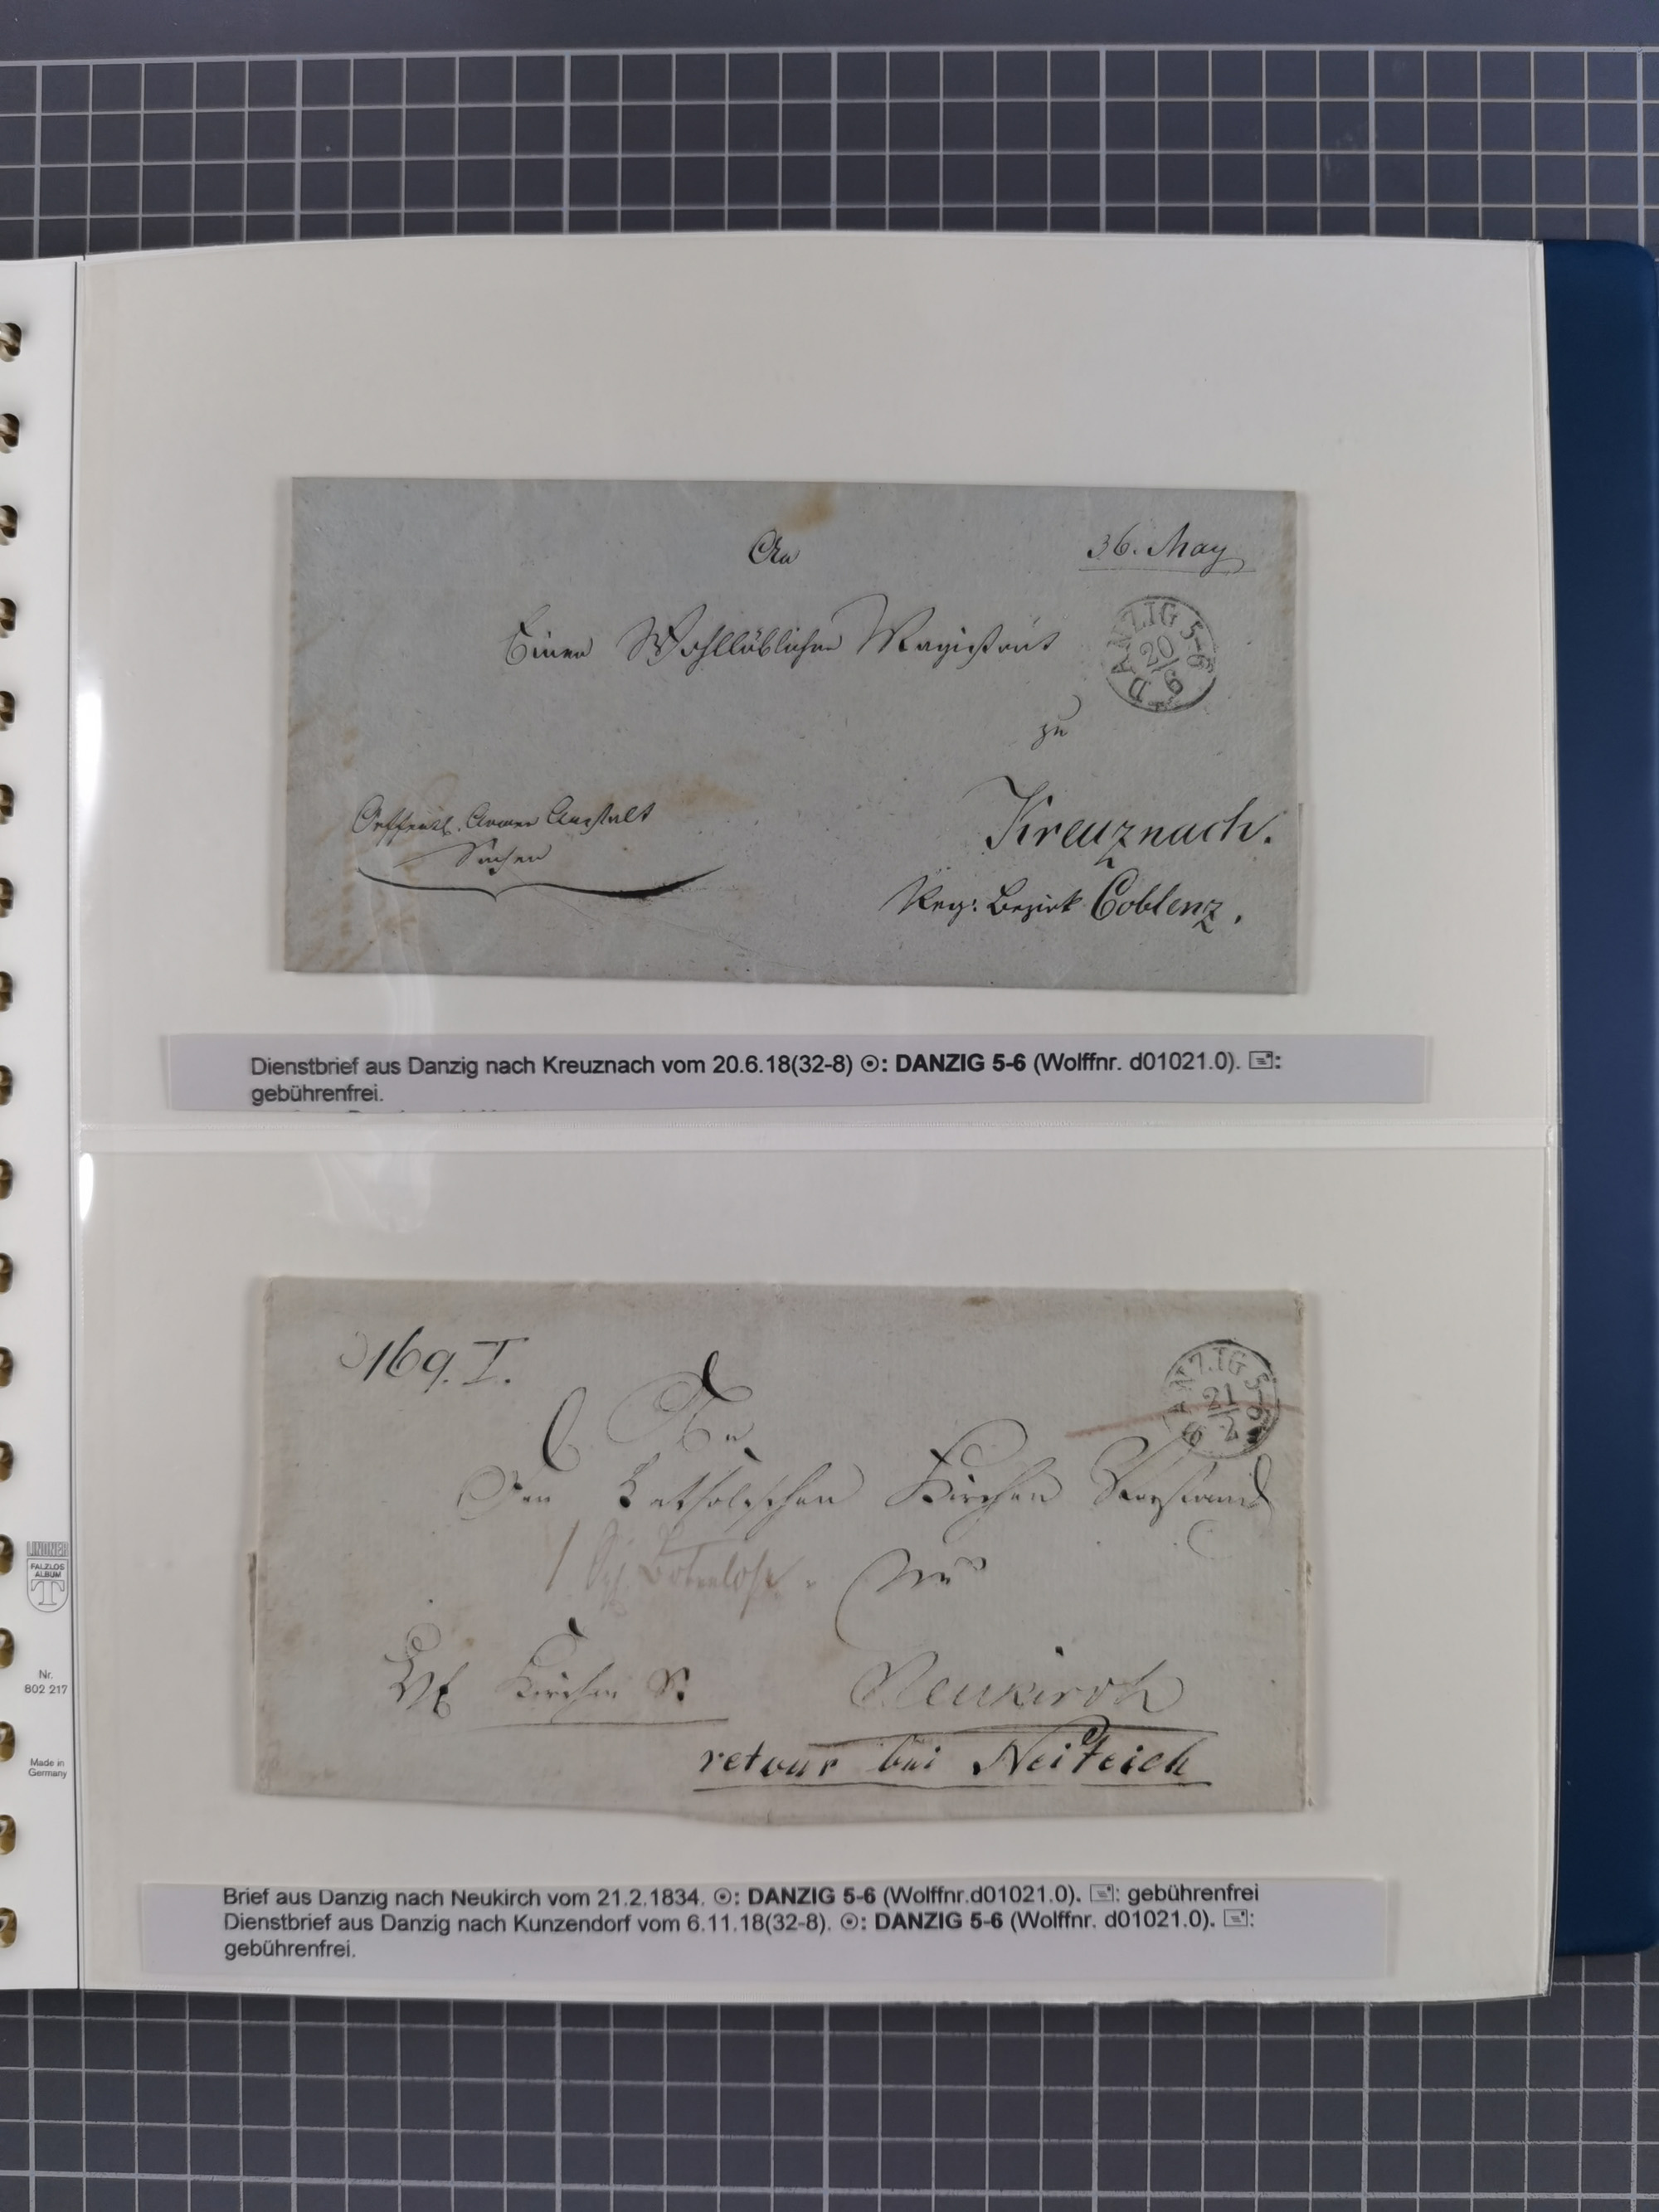 An
36. May
Einen Wohllöblichen Magistrat
DANZIG 5-6
20/6
zu
Oeffentl. Armen Anstalt
Sachen
Kreuznach.
Reg: Bezirk Coblenz.
Dienstbrief aus Danzig nach Kreuznach vom 20.6.18(32-8) ⦿: DANZIG 5-6 (Wolffnr. d01021.0). 🖃:
gebührenfrei.
169. I.
ANZIG 5-6
21/2
An
Den Katholischen Kirchen Vorstand
zu
Kirchen S:
Neukirch
retour bei Neiteich
Brief aus Danzig nach Neukirch vom 21.2.1834. ⦿: DANZIG 5-6 (Wolffnr.d01021.0). 🖃: gebührenfrei
Dienstbrief aus Danzig nach Kunzendorf vom 6.11.18(32-8). ⦿: DANZIG 5-6 (Wolffnr. d01021.0). 🖃:
gebührenfrei.
LINDNER
FALZLOS
ALBUM
T
Nr.
802 217
Made in
Germany